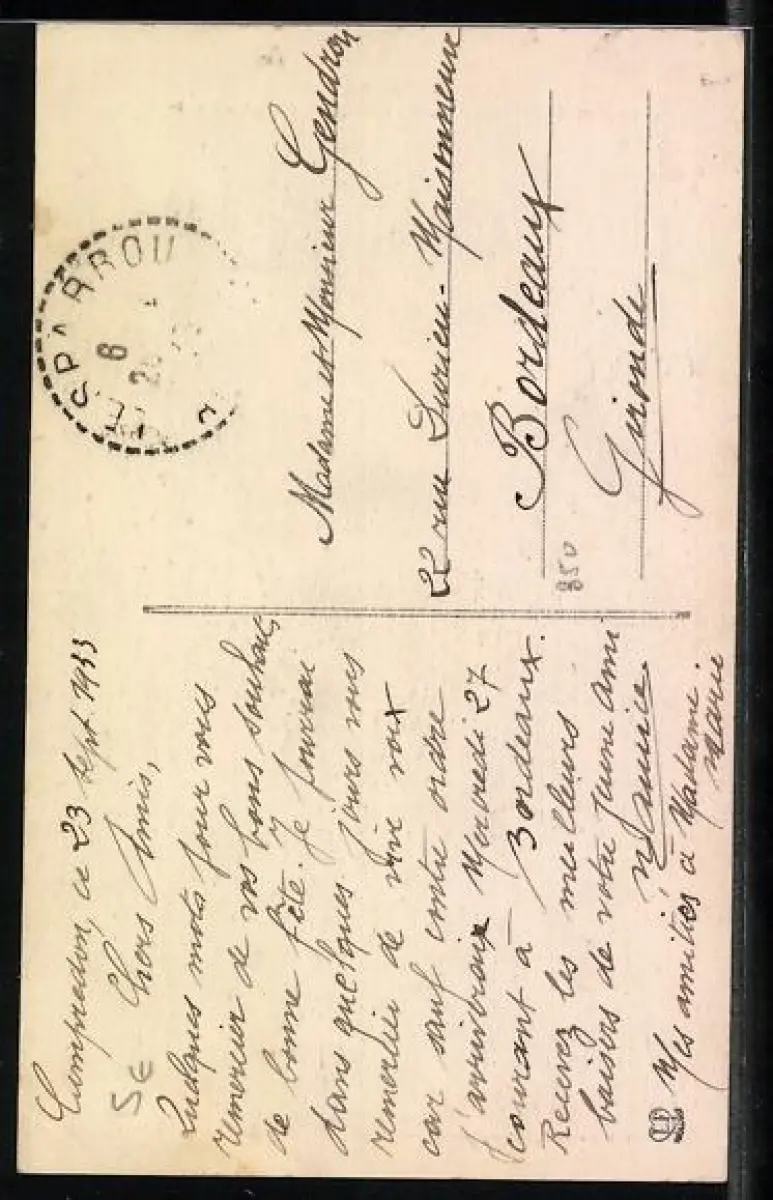 ce 23 Sept 1933
Chers Amis,
Quelques mots pour vous
remercier de vos bons souhaits
de bonne fête. Je pourrai
dans quelques jours vous
remercier de vive voix
car sauf contre ordre
j'arriverai Mercredi 27
courant à Bordeaux.
Recevez les meilleurs
baisers de votre jeune ami
Maurice
Mes amitiés à Madame
Marie
5€
ESPARROU
Madame et Monsieur Gendron
22 rue Lurieu-Maisonneuve
Bordeaux
Gironde
850